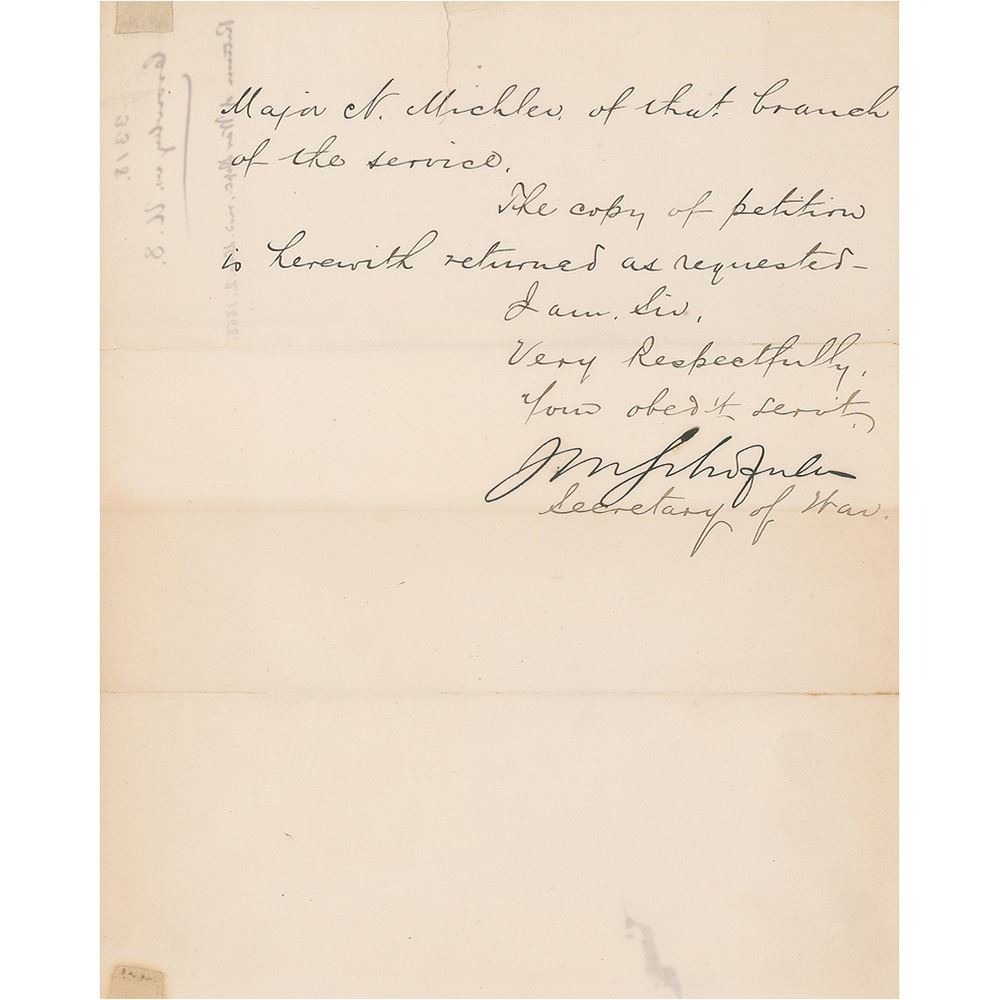 Major N. Michler, of that branch
of the service.
The copy of petition
is herewith returned as requested—
I am, Sir,
Very Respectfully,
Your obed't serv't,
JM Schofield
Secretary of War.